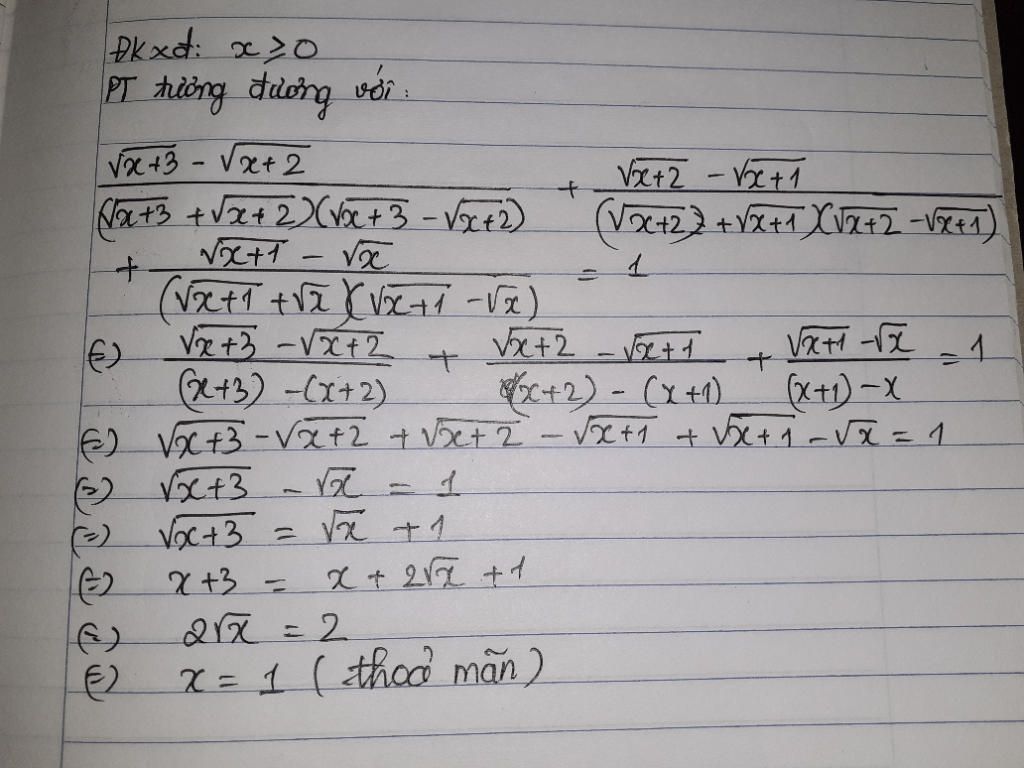 ĐKxđ: x ≥ 0
PT tương đương với:
(√(x+3) - √(x+2)) / ((√(x+3) + √(x+2))(√(x+3) - √(x+2))) + (√(x+2) - √(x+1)) / ((√(x+2) + √(x+1))(√(x+2) - √(x+1)))
+ (√(x+1) - √x) / ((√(x+1) + √x)(√(x+1) - √x)) = 1
(=) (√(x+3) - √(x+2)) / ((x+3) - (x+2)) + (√(x+2) - √(x+1)) / ((x+2) - (x+1)) + (√(x+1) - √x) / ((x+1) - x) = 1
(=) √(x+3) - √(x+2) + √(x+2) - √(x+1) + √(x+1) - √x = 1
(=) √(x+3) - √x = 1
(=) √(x+3) = √x + 1
(=) x + 3 = x + 2√x + 1
(=) 2√x = 2
(=) x = 1 (thoả mãn)